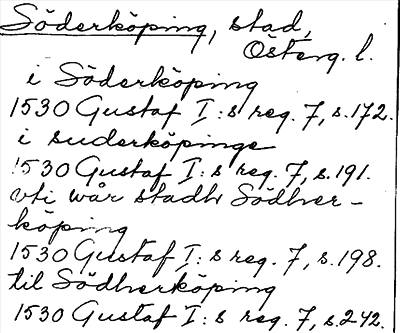 Söderköping, stad,
Österg. l.
i Söderköping
1530 Gustaf I:s reg. 7, s. 172.
i suderköpinge
1530 Gustaf I:s reg. 7, s. 191.
vti wår stadh Södher-
köping
1530 Gustaf I:s reg. 7, s. 198.
til Södherköping
1530 Gustaf I:s reg. 7, s. 242.